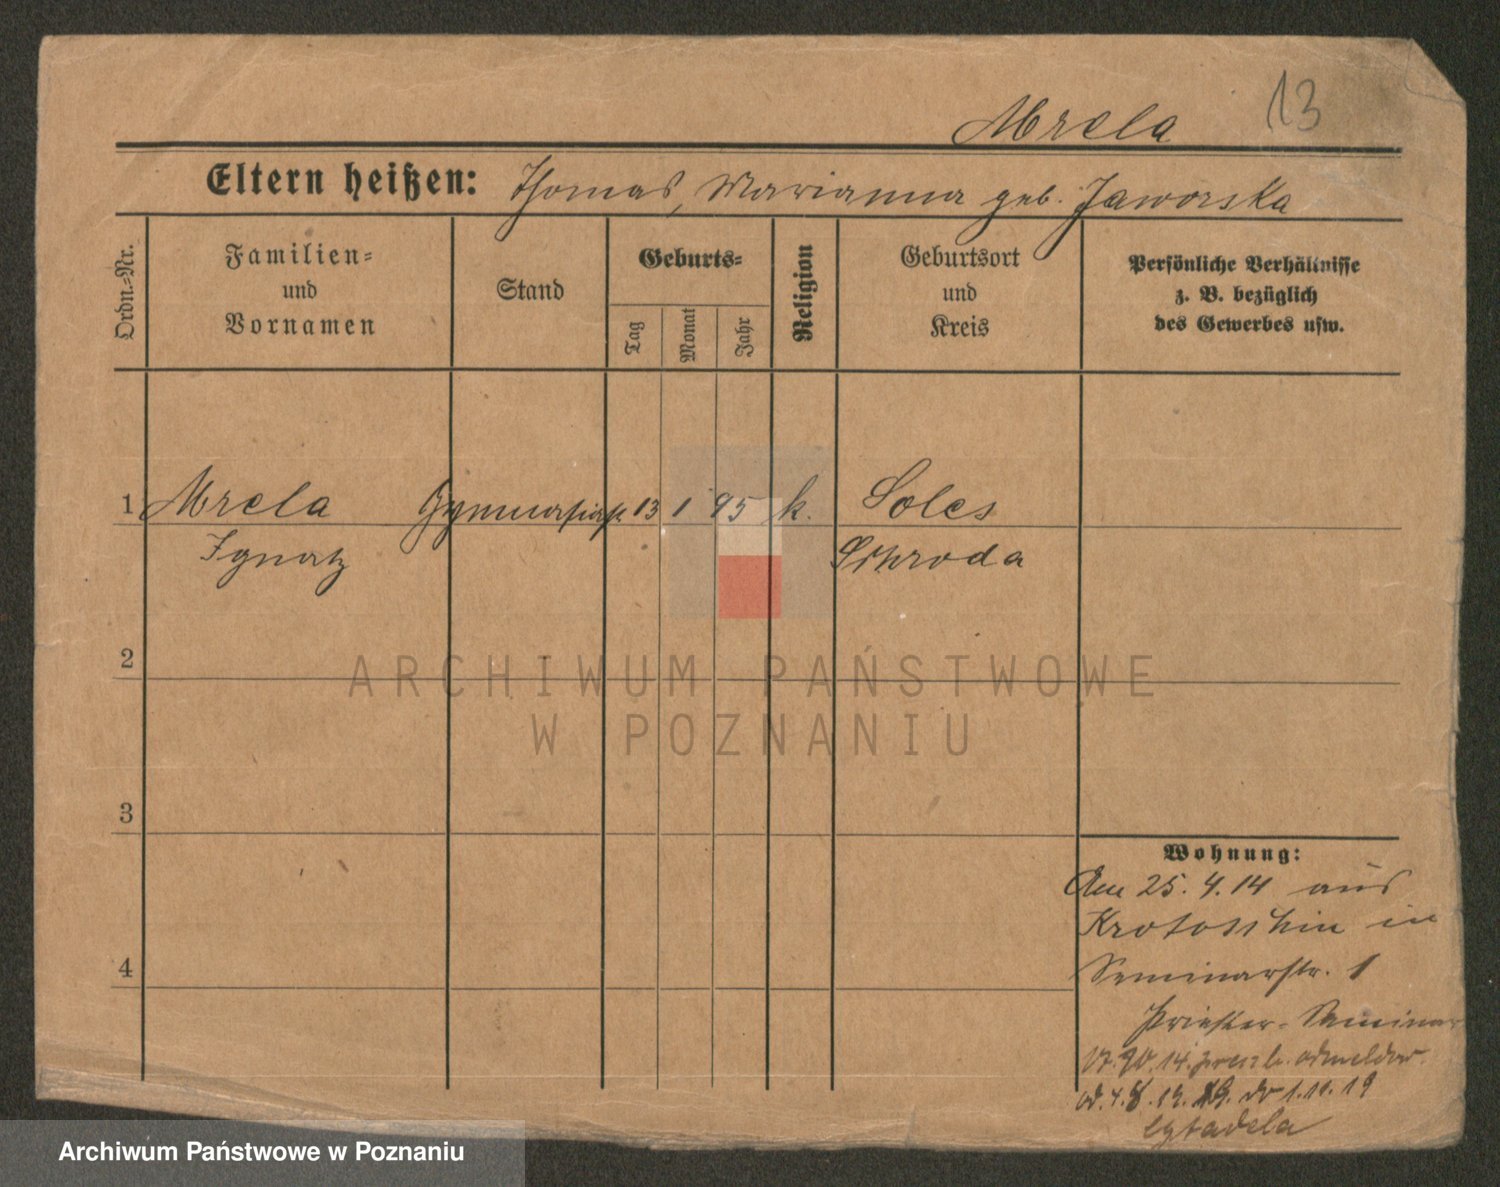 13
Mrela
Eltern heißen: Thomas, Marianna geb. Jaworska
Ordn.-Nr.
Familien-
und
Vornamen
Stand
Geburts-
Tag
Monat
Jahr
Religion
Geburtsort
und
Kreis
Persönliche Verhältnisse
z. B. bezüglich
des Gewerbes usw.
1 Mrela Gymnasiast 13 1 95 k. Solec
Ignatz Schroda
2
3
4
Wohnung:
Am 25.4.14 aus
Krotoschin in
Seminarstr. 1
Priester-Seminar
14.
do 1.10.19
Cytadela
ARCHIWUM PAŃSTWOWE
W POZNANIU
Archiwum Państwowe w Poznaniu